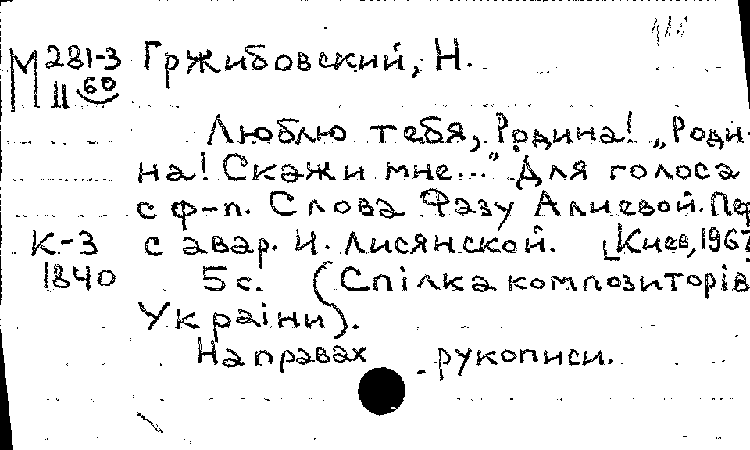 М 281-3 Гржибовский, Н.
II 60
Люблю тебя, Родина! „Роди-
на! Скажи мне..." Для голоса
с ф-п. Слова Фазу Алиевой. Пер.
К-3 с авар. И. Лисянской. [Киев, 1967]
1840 5 с. (Спілка композиторів
Украіни).
На правах рукописи.